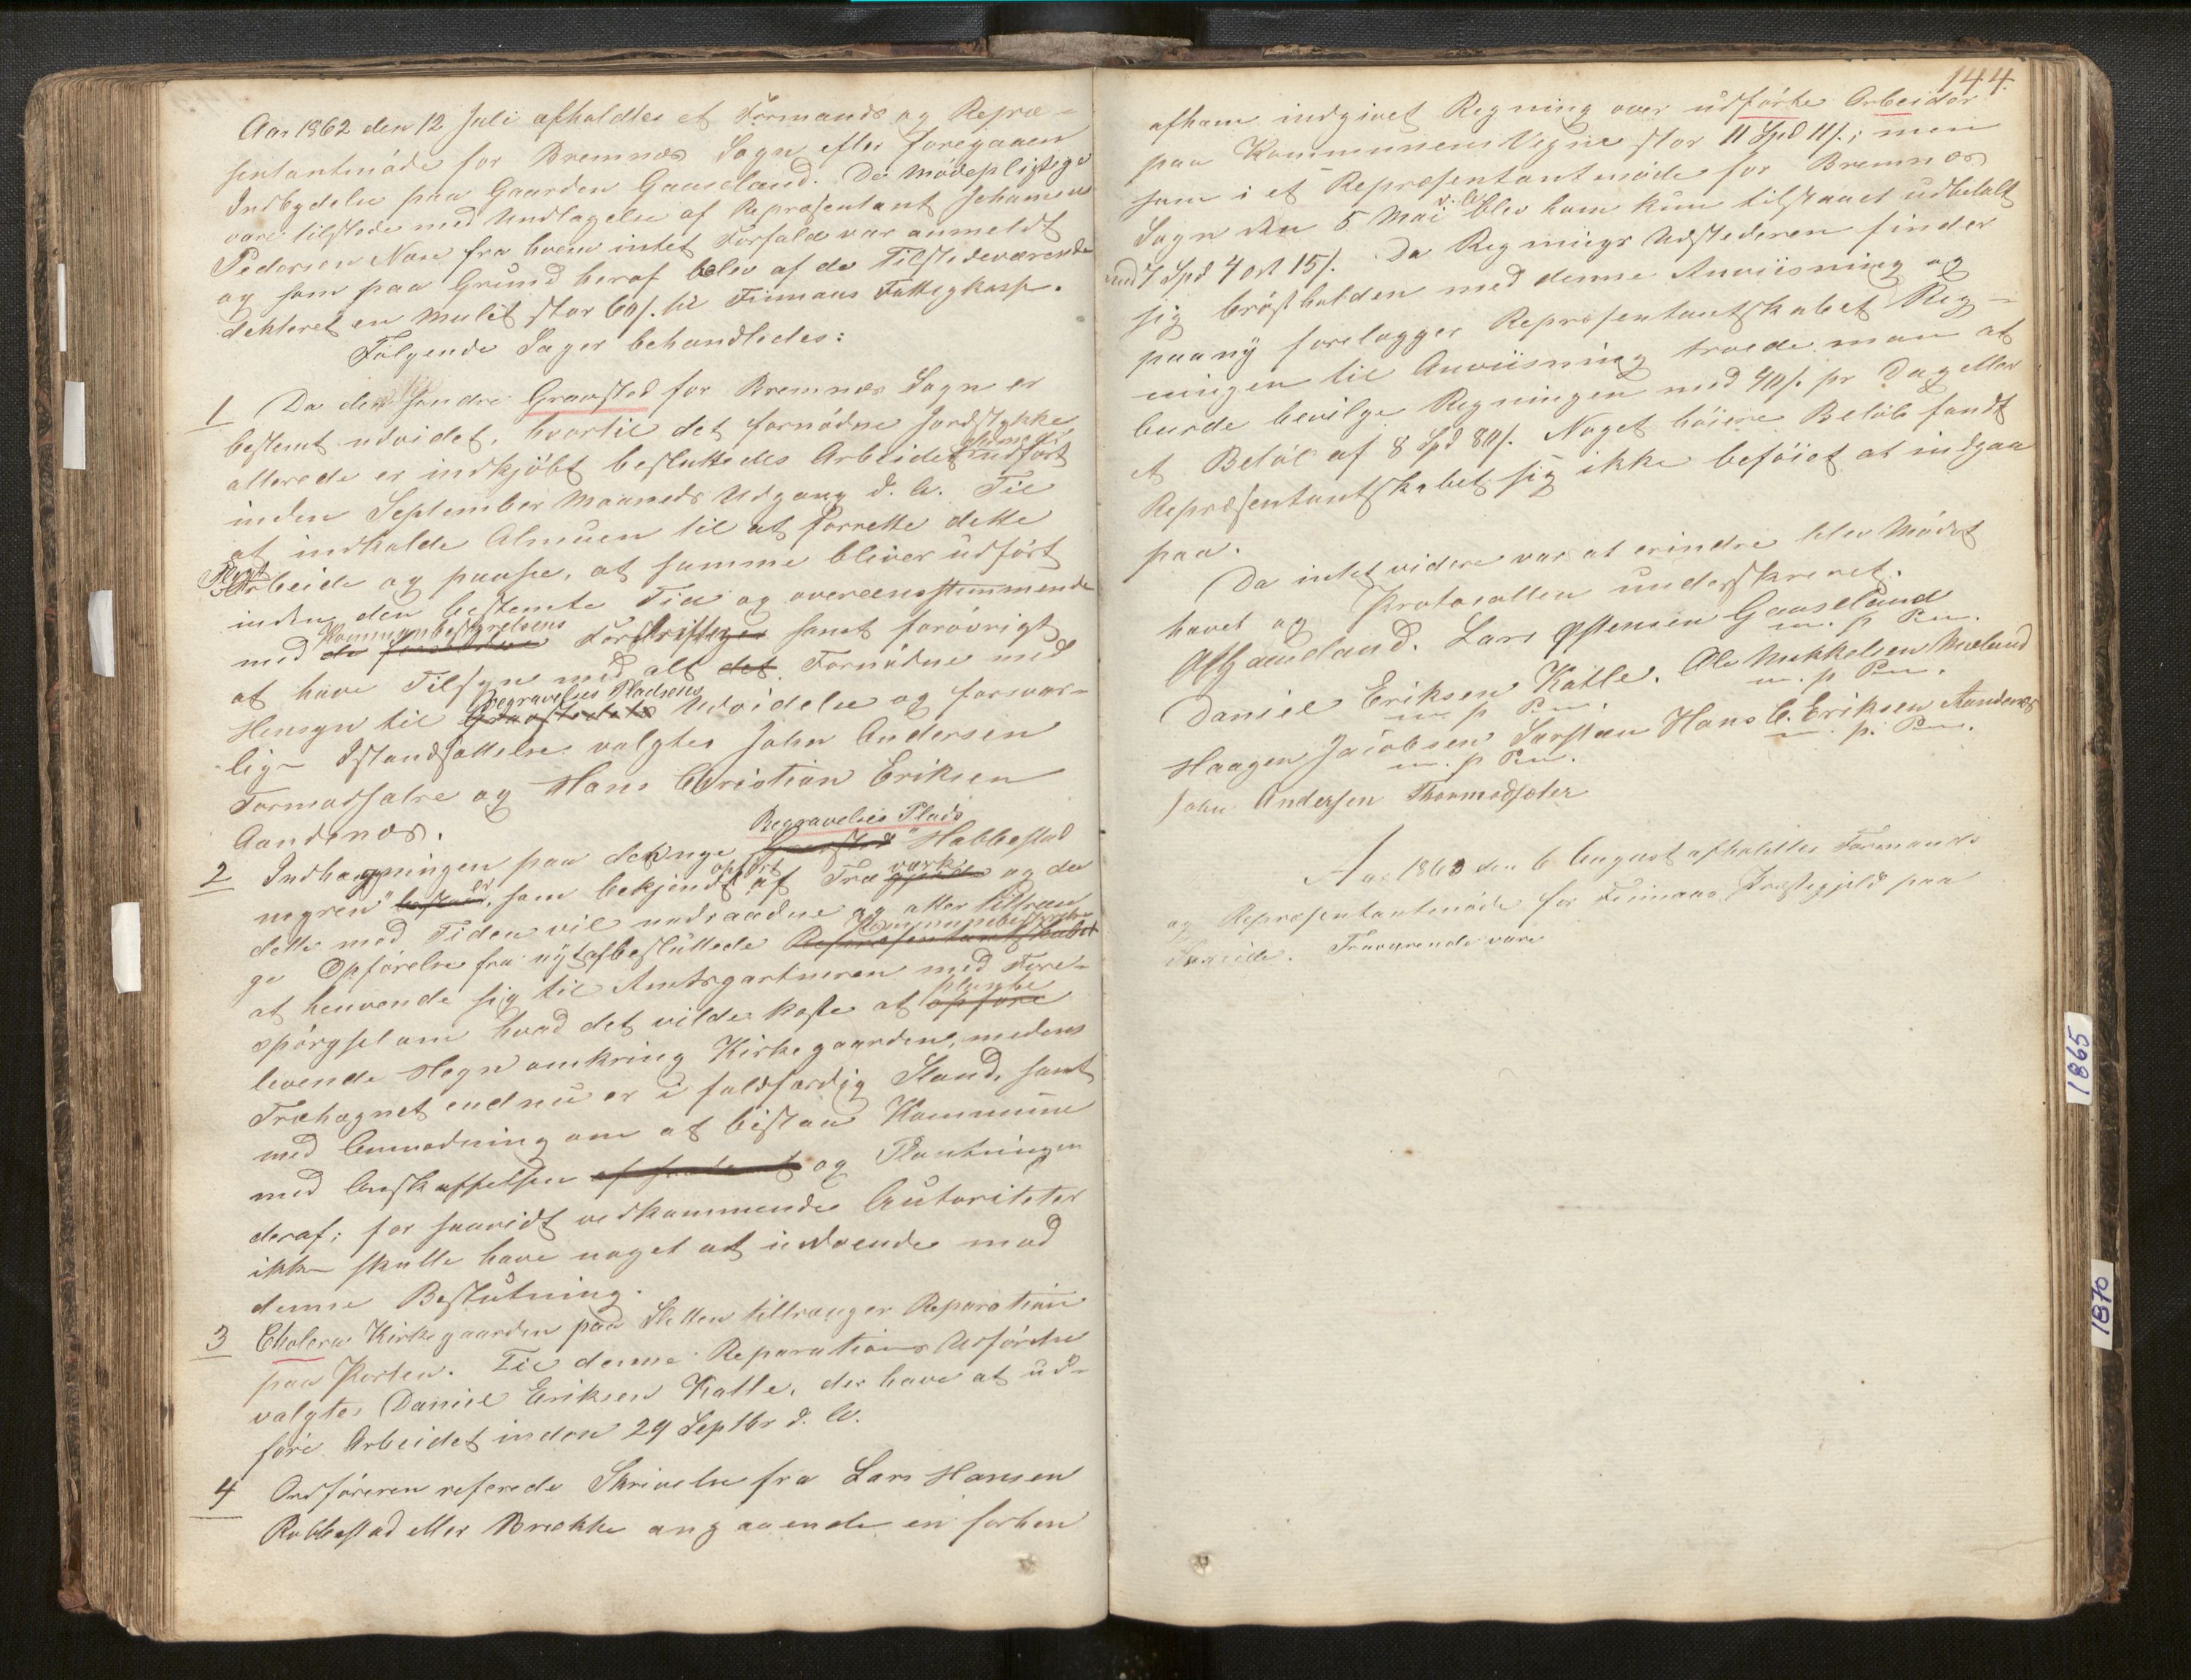 Aar 1862 den 12 Juli afholdtes et Formands og Repræ-
sentantmøde for Bremnæs Sogn efter foregaaen
Indbydelse paa Gaarden Gaaseland. De Mødepligtige
vare tilstede med Undtagelse af Repræsentant Johannes
Pedersen Næse fra hvem intet Forfald var anmeldt
og som paa Grund heraf blev af de Tilstedeværende
dekteret en Mulct stor 60 s. til Finnaas Fattigkasse.
Følgende Sager behandledes:
1 Da det søndre Gravsted for Bremnæs Sogn er
bestemt udvidet, hvortil det fornødne Jordstykke
allerede er indkjøbt besluttedes Arbeidet udført
inden September Maaneds Udgang d. A. Til
at indkalde Almuen til at forrette dette
Pligt
Arbeide og paase, at samme bliver udført
inden den bestemte Tid og overeensstemmende
Kommunbestyrelsens
med de Forskrifter samt forøvrigt
at have Tilsyn med alt det Fornødne med
Begravelses Pladsens
Hensyn til Gravstedets Udvidelse og forsvar-
lig Istandsættelse valgtes John Andersen
Tormodsætre og Hans Christian Eriksen
Aandenæs.
Begravelses Plads
2 Indhægningen paa det inge Gravsted "Habbestad
er opført værk
myren" bestaar, som bekjendt af Træ og da
dette med Tiden vil nedraadne og atter tiltræn
Kommunebestyrelsen
ge Opførelse fra nyt af besluttede Repræsentantskabet
at henvende sig til Amtsgartneren med Fore-
plante
spørgsel om hvad det vilde koste at opføre
levende Hegn omkring Kirkegaarden, medens
Træhegnet endnu er i fuldfærdig Stand, samt
med Anmodning om at bistaa Kommune
med Anskaffelsen og Plantningen
deraf; for saavidt vedkommende Autoriteter
ikke skulle have noget at indvende mod
denne Beslutning.
3 Cholera Kirkegaarden paa Sletten tiltrænger Reparation
paa Porten. Til denne Reparations Udførelse
valgtes Daniel Eriksen Katle, der have at ud-
føre Arbeidet inden 29 Septbr d. A.
4 Ordføreren referede Skrivelse fra Lars Hansen
Rabbestad eller Brekke angaaende en forhen
144.
afham indgivet Regning over udførte Arbeider
paa Kommunens Vegne stor 11 Spd 11 s.; men
som i et Repræsentantmøde for Bremnæs
Sogn den 5 Mai blev ham kun tilstaaet udbetalt
med 7 Spd 4 ort 15 s. Da Regnings Udstederen finder
sig brøstholden med denne Anviisning og
paany forelægger Repræsentantskabet Reg-
ningen til Anviisning troede man at
burde bevilge Regningen med 40 s. pr Dag eller
et Beløb af 8 Spd 80 s. Noget høiere Beløb fandt
Repræsentantskabet sig ikke beføiet at indgaa
paa.
Da intet videre var at erindre blev Mødet
hævet og Protocollen underskrevet.
Gaaseland. Lars Østensen Gaaseland
m. p Pen.
Daniel Eriksen Katle. Ole Mikkelsen Mæland
m. p Pen. m. p Pen.
Haagen Jacobsen Hans C. Eriksen Aandenæs
m. p Pen. m. p. Pen.
John Andersen Thormodsæter
Aar 1863 den 6 August afholdtes Formands
og Repræsentantmøde for Finnaas Præstegjeld paa
Fraværende vare
1865
1870